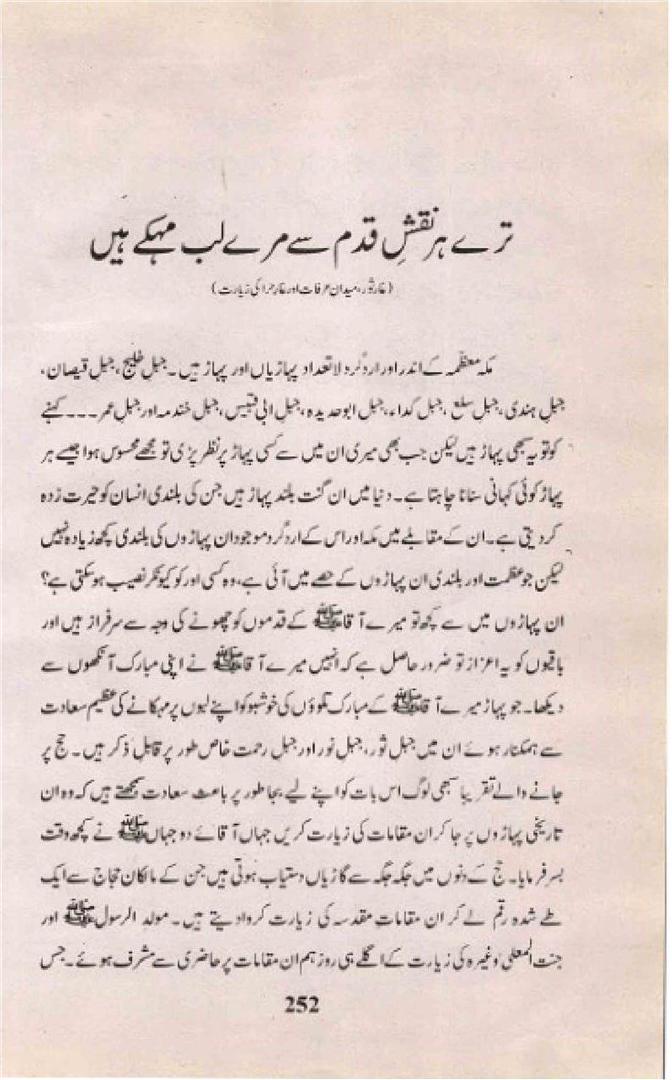 ترے ہر نقشِ قدم سے مرے لب مہکے ہیں
(غارِ ثور، میدان عرفات اور غارِ حرا کی زیارت)
مکہ معظّمہ کے اندر اور اردگرد لاتعداد پہاڑیاں اور پہاڑ ہیں۔ جبل خلیج، جبل قیصان،
جبل ہندی، جبل سلع، جبل کداء، جبل ابوحدیدہ، جبل ابی قبیس، جبل خندمہ اور جبل عمر۔۔۔ کہنے
کو تو یہ سبھی پہاڑ ہیں لیکن جب بھی میری ان میں سے کسی پہاڑ پر نظر پڑی تو مجھے محسوس ہوا جیسے ہر
پہاڑ کوئی کہانی سنانا چاہتا ہے۔ دنیا میں ان گنت بلند پہاڑ ہیں جن کی بلندی انسان کو حیرت زدہ
کر دیتی ہے۔ ان کے مقابلے میں مکہ اور اس کے اردگرد موجود ان پہاڑوں کی بلندی کچھ زیادہ نہیں
لیکن جو عظمت اور بلندی ان پہاڑوں کے حصے میں آئی ہے، وہ کسی اور کو کیونکر نصیب ہوسکتی ہے؟
ان پہاڑوں میں سے کچھ تو میرے آقا ﷺ کے قدموں کو چھونے کی وجہ سے سرفراز ہیں اور
باقیوں کو یہ اعزاز تو ضرور حاصل ہے کہ انہیں میرے آقا ﷺ نے اپنی مبارک آنکھوں سے
دیکھا۔ جو پہاڑ میرے آقا ﷺ کے مبارک تلوؤں کی خوشبو کو اپنے لبوں پر مہکانے کی عظیم سعادت
سے ہمکنار ہوئے ان میں جبل ثور، جبل نور اور جبل رحمت خاص طور پر قابل ذکر ہیں۔ حج پر
جانے والے تقریباً سبھی لوگ اس بات کو اپنے لیے بجا طور پر باعث سعادت سمجھتے ہیں کہ وہ ان
تاریخی پہاڑوں پر جا کر ان مقامات کی زیارت کریں جہاں آقائے دو جہاں ﷺ نے کچھ وقت
بسر فرمایا۔ حج کے دنوں میں جگہ جگہ سے گاڑیاں دستیاب ہوتی ہیں جن کے مالکان حجاج سے ایک
طے شدہ رقم لے کر ان مقامات مقدسہ کی زیارت کروا دیتے ہیں۔ مولد الرسول ﷺ اور
جنت المعلیٰ وغیرہ کی زیارت کے اگلے ہی روز ہم ان مقامات پر حاضری سے مشرف ہوئے۔ جس
252